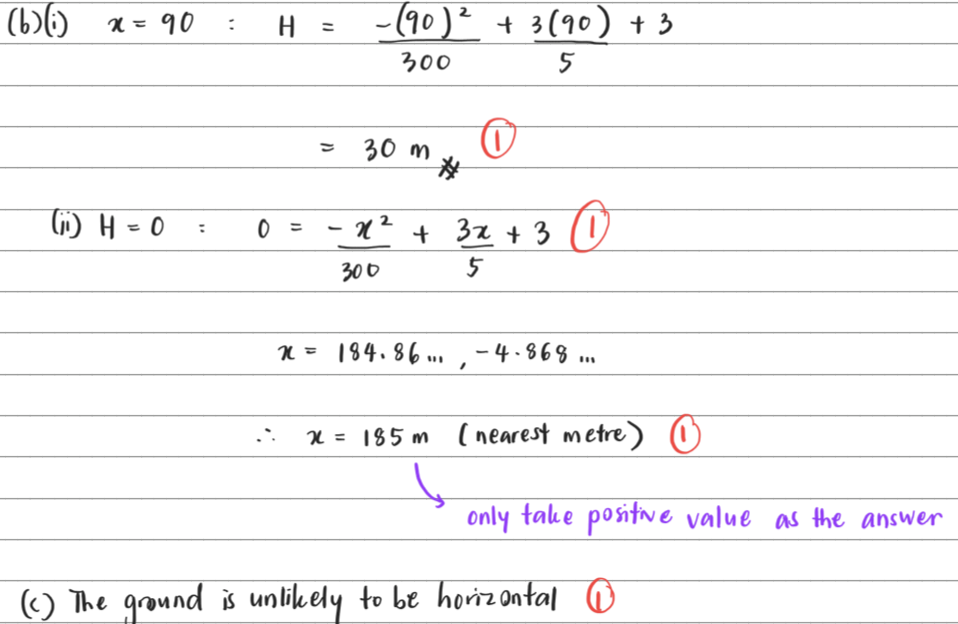 (b)(i) x = 90 : H = -(90)²/300 + 3(90)/5 + 3
= 30 m # ①
(ii) H = 0 : 0 = -x²/300 + 3x/5 + 3 ①
x = 184.86... , -4.868...
∴ x = 185 m (nearest metre) ①
only take positive value as the answer
(c) The ground is unlikely to be horizontal ①